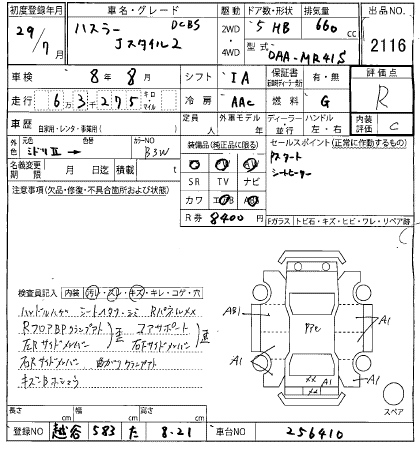 初度登録年月 車名・グレード 駆動 ドア数・形状 排気量 出品NO.
29/7月 ハスラー DCBS 2WD・4WD 5 HB 660 cc 2116
Jスタイル2 型式 DAA-MR41S
車検 8年 8月 シフト IA 保証書 有・無 評価点
走行 6 3 275 キロ マイル 冷房 AAC 燃料 G R
車歴 自家用・レンタ・事業用( ) 定員 人 外車モデル 年 ディーラー 並行 ハンドル 左・右 内装評価 C
外色 元色 ミドリⅡ 色替 カラーNO B3W 装備品(純正品に限る) セールスポイント(正常に動作するもの)
名義変更期限 月 日迄 積載 t SR TV ナビ Pスタート
注意事項(欠品・修復・不具合箇所および状態) カワ エアB シートヒーター
R券 8400円 Fガラス トビ石・キズ・ヒビ・ワレ・リペア跡
検査員記入 内装 汚レ・スレ・キズ・キレ・コゲ・穴
ハンドルハゲ
Rフロア コアサポート
左Rサイドメンバー 右Fサイドメンバー
右Rサイドメンバー
AB1 A1 A1 A1 A1 A1 A1 XX
スペア
長さ cm 幅 cm 高さ cm
登録NO 越谷 583 た 8-21 車台NO 256410